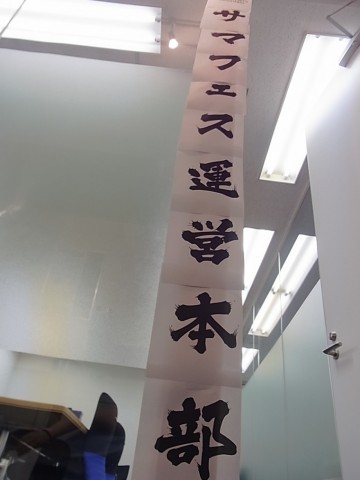 サマフェス運営本部